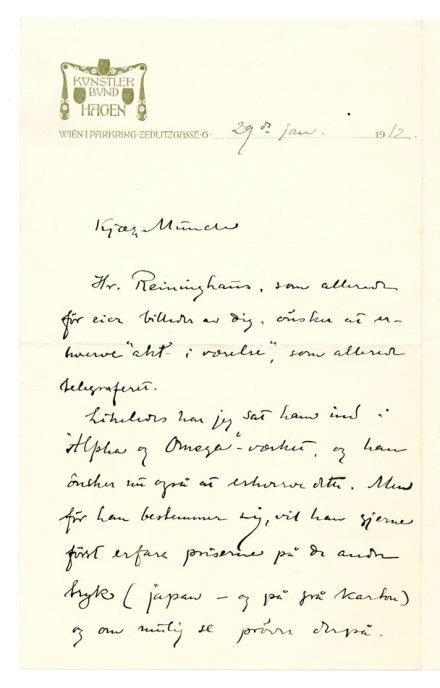 KÜNSTLER
BUND
HAGEN
WIEN·I·PARKRING·ZEDLITZGASSE·6· 29de jan. 1912.
Kjære Munch
Hr. Reininghaus, som allerede
før eier billeder av dig, ønsker at er-
hverve "akt i værelse", som allerede
telegraferet.
Likeledes har jeg sat ham ind i
"Alpha og Omega"-værket, og han
ønsker nu også at erhverve dette. Men
før han bestemmer sig, vil han gjerne
først erfare priserne på de andre
tryk (japan – og på grå karton)
og om mulig se prøver derpå.